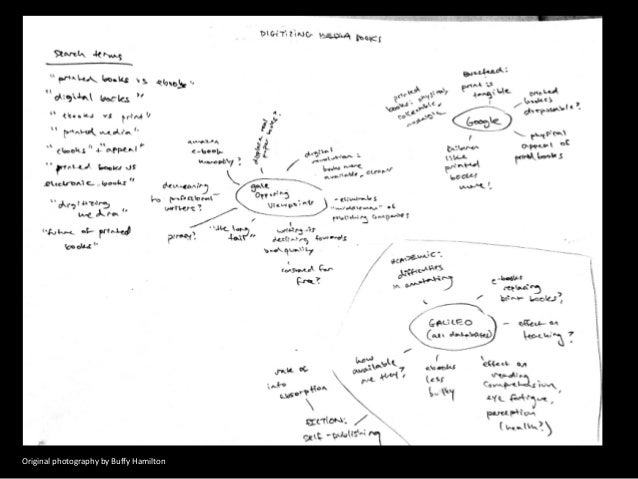 DIGITIZING BOOKS
Search terms
"printed books vs ebooks"
"digital books"
"ebooks vs print"
"printed media"
"ebooks" + "appeal"
"printed books vs
electronic books"
"digitizing
media"
"future of printed
books"
Gale
Opposing
Viewpoints
amazon
e-book
monopoly?
digital
revolution:
books more
available, cleaner
eliminates
"middleman" of
publishing companies
writing is
declining towards
bad quality
consumed for
free?
"the long
tail"
piracy?
demeaning
to professional
writers?
Google
printed
books: physical,
collectable,
nostalgic
Buzzfeed:
print is
tangible
printed
books
disposable?
physical
appeal of
printed books
children
like
printed
books
more!
GALILEO
(all databases)
ACADEMIC:
difficulties
in annotating
e-books
replacing
print books?
effect on
teaching?
effect on
reading
comprehension,
eye fatigue,
perception
(health?)
ebooks
less
bulky
how
available
are they?
rate of
info
absorption
FICTION:
SELF-publishing
Original photography by Buffy Hamilton